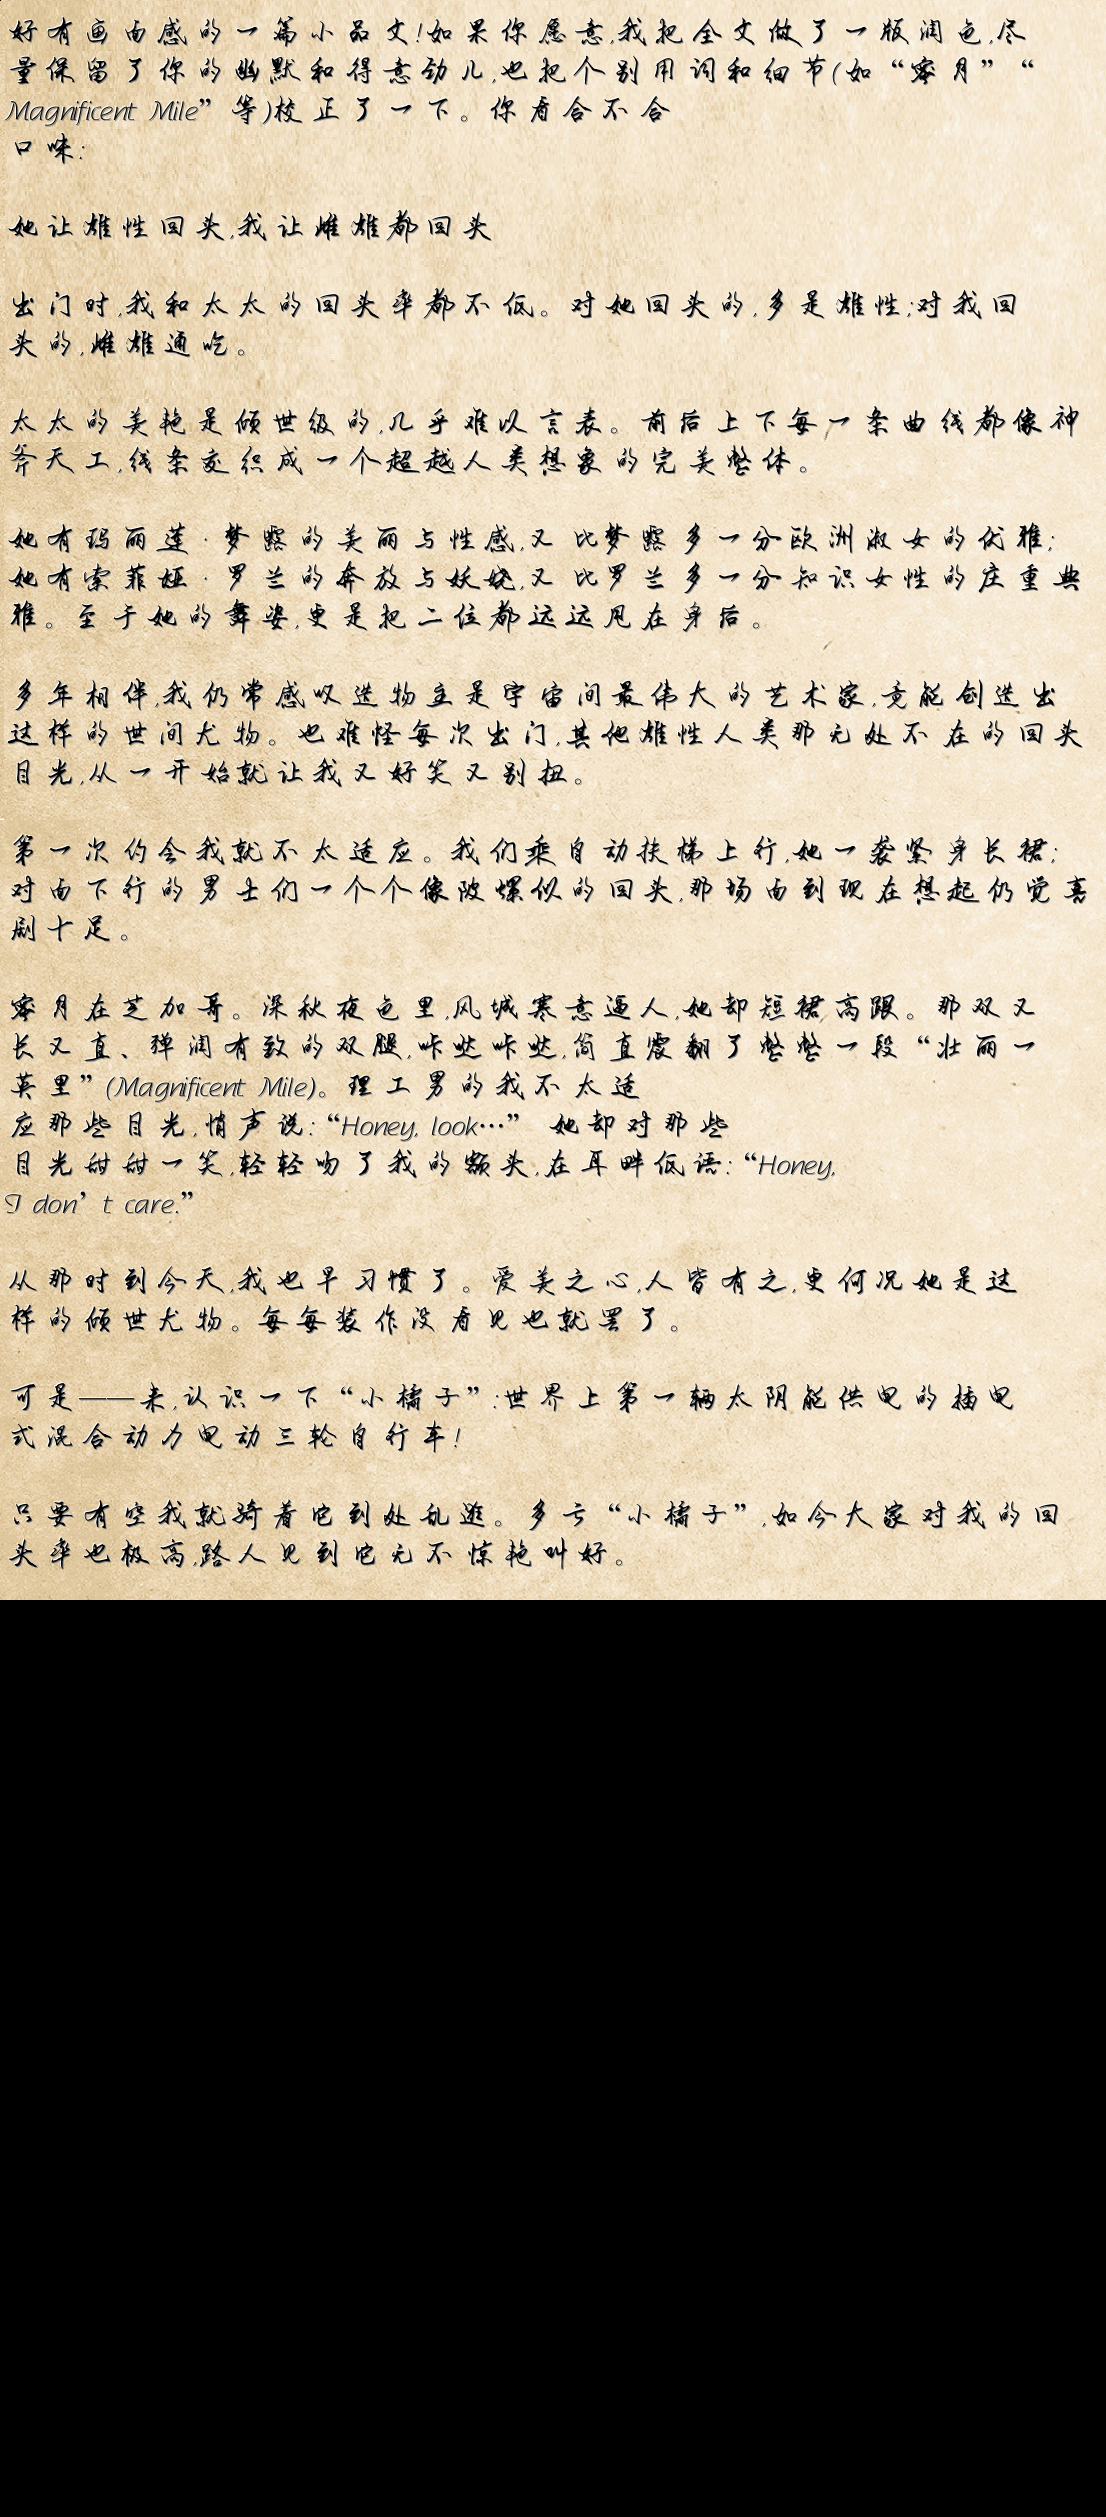 好有画面感的一篇小品文!如果你愿意,我把全文做了一版润色,尽
量保留了你的幽默和得意劲儿,也把个别用词和细节(如“蜜月”“
Magnificent Mile”等)校正了一下。你看合不合
口味:
她让雄性回头,我让雌雄都回头
出门时,我和太太的回头率都不低。对她回头的,多是雄性;对我回
头的,雌雄通吃。
太太的美艳是倾世级的,几乎难以言表。前后上下每一条曲线都像神
斧天工,线条交织成一个超越人类想象的完美整体。
她有玛丽莲·梦露的美丽与性感,又比梦露多一分欧洲淑女的优雅;
她有索菲娅·罗兰的奔放与妖娆,又比罗兰多一分知识女性的庄重典
雅。至于她的舞姿,更是把二位都远远甩在身后。
多年相伴,我仍常感叹造物主是宇宙间最伟大的艺术家,竟能创造出
这样的世间尤物。也难怪每次出门,其他雄性人类那无处不在的回头
目光,从一开始就让我又好笑又别扭。
第一次约会我就不太适应。我们乘自动扶梯上行,她一袭紧身长裙;
对面下行的男士们一个个像陀螺似的回头,那场面到现在想起仍觉喜
剧十足。
蜜月在芝加哥。深秋夜色里,风城寒意逼人,她却短裙高跟。那双又
长又直、弹润有致的双腿,咔哒咔哒,简直震翻了整整一段“壮丽一
英里”(Magnificent Mile)。理工男的我不太适
应那些目光,悄声说:“Honey, look…” 她却对那些
目光甜甜一笑,轻轻吻了我的额头,在耳畔低语:“Honey,
I don’t care.”
从那时到今天,我也早习惯了。爱美之心,人皆有之,更何况她是这
样的倾世尤物。每每装作没看见也就罢了。
可是——来,认识一下“小橘子”:世界上第一辆太阳能供电的插电
式混合动力电动三轮自行车!
只要有空我就骑着它到处乱逛。多亏“小橘子”,如今大家对我的回
头率也极高,路人见到它无不惊艳叫好。